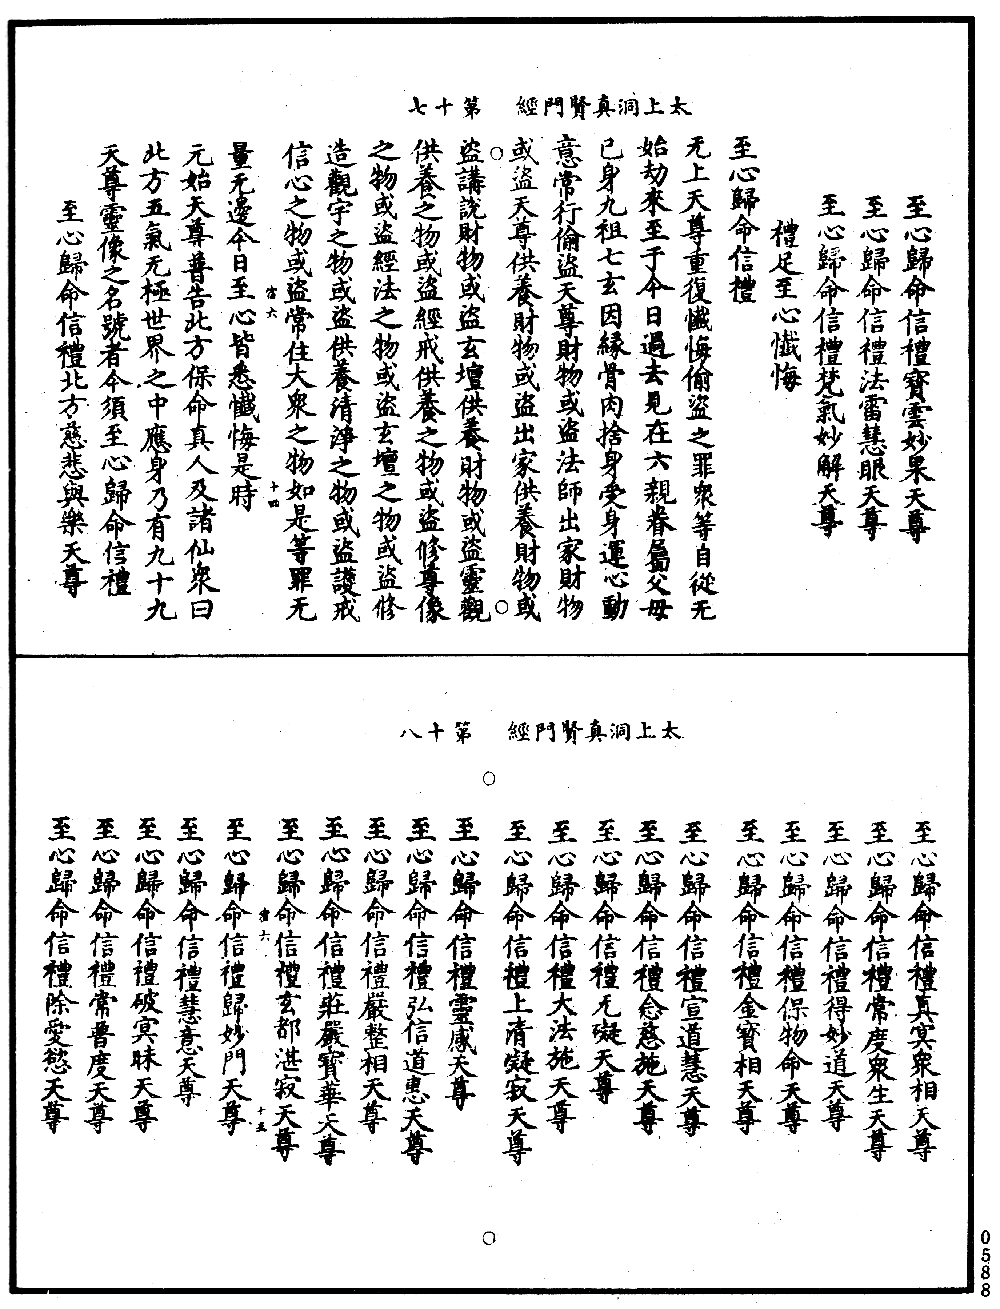 太上洞真賢門經　第十七
至心歸命信禮寶雲妙果天尊
至心歸命信禮法雷慧眼天尊
至心歸命信禮梵氣妙解天尊
禮足至心懺悔
至心歸命信禮
无上天尊重復懺悔偷盜之罪衆等自從无
始劫來至于今日過去見在六親眷屬父母
已身九祖七玄因緣骨肉捨身受身運心動
意常行偷盜天尊財物或盜法師出家財物
或盜天尊供養財物或盜出家供養財物或
盜講說財物或盜玄壇供養財物或盜靈觀
供養之物或盜經戒供養之物或盜修尊像
之物或盜經法之物或盜玄壇之物或盜修
造觀宇之物或盜供養清淨之物或盜護戒
信心之物或盜常住大衆之物如是等罪无
宿六　十四
量无邊今日至心皆悉懺悔是時
元始天尊普告北方保命真人及諸仙衆曰
北方五氣无極世界之中應身乃有九十九
天尊靈像之名號者今須至心歸命信禮
至心歸命信禮北方慈悲與樂天尊
太上洞真賢門經　第十八
至心歸命信禮真冥衆相天尊
至心歸命信禮常度衆生天尊
至心歸命信禮得妙道天尊
至心歸命信禮保物命天尊
至心歸命信禮金寶相天尊
至心歸命信禮宣道慧天尊
至心歸命信禮念慈施天尊
至心歸命信禮无礙天尊
至心歸命信禮大法施天尊
至心歸命信禮上清凝寂天尊
至心歸命信禮靈感天尊
至心歸命信禮弘信道惠天尊
至心歸命信禮嚴整相天尊
至心歸命信禮莊嚴寶華天尊
至心歸命信禮玄都湛寂天尊
宿六　十五
至心歸命信禮歸妙門天尊
至心歸命信禮慧意天尊
至心歸命信禮破冥昧天尊
至心歸命信禮常普度天尊
至心歸命信禮除愛慾天尊
0588